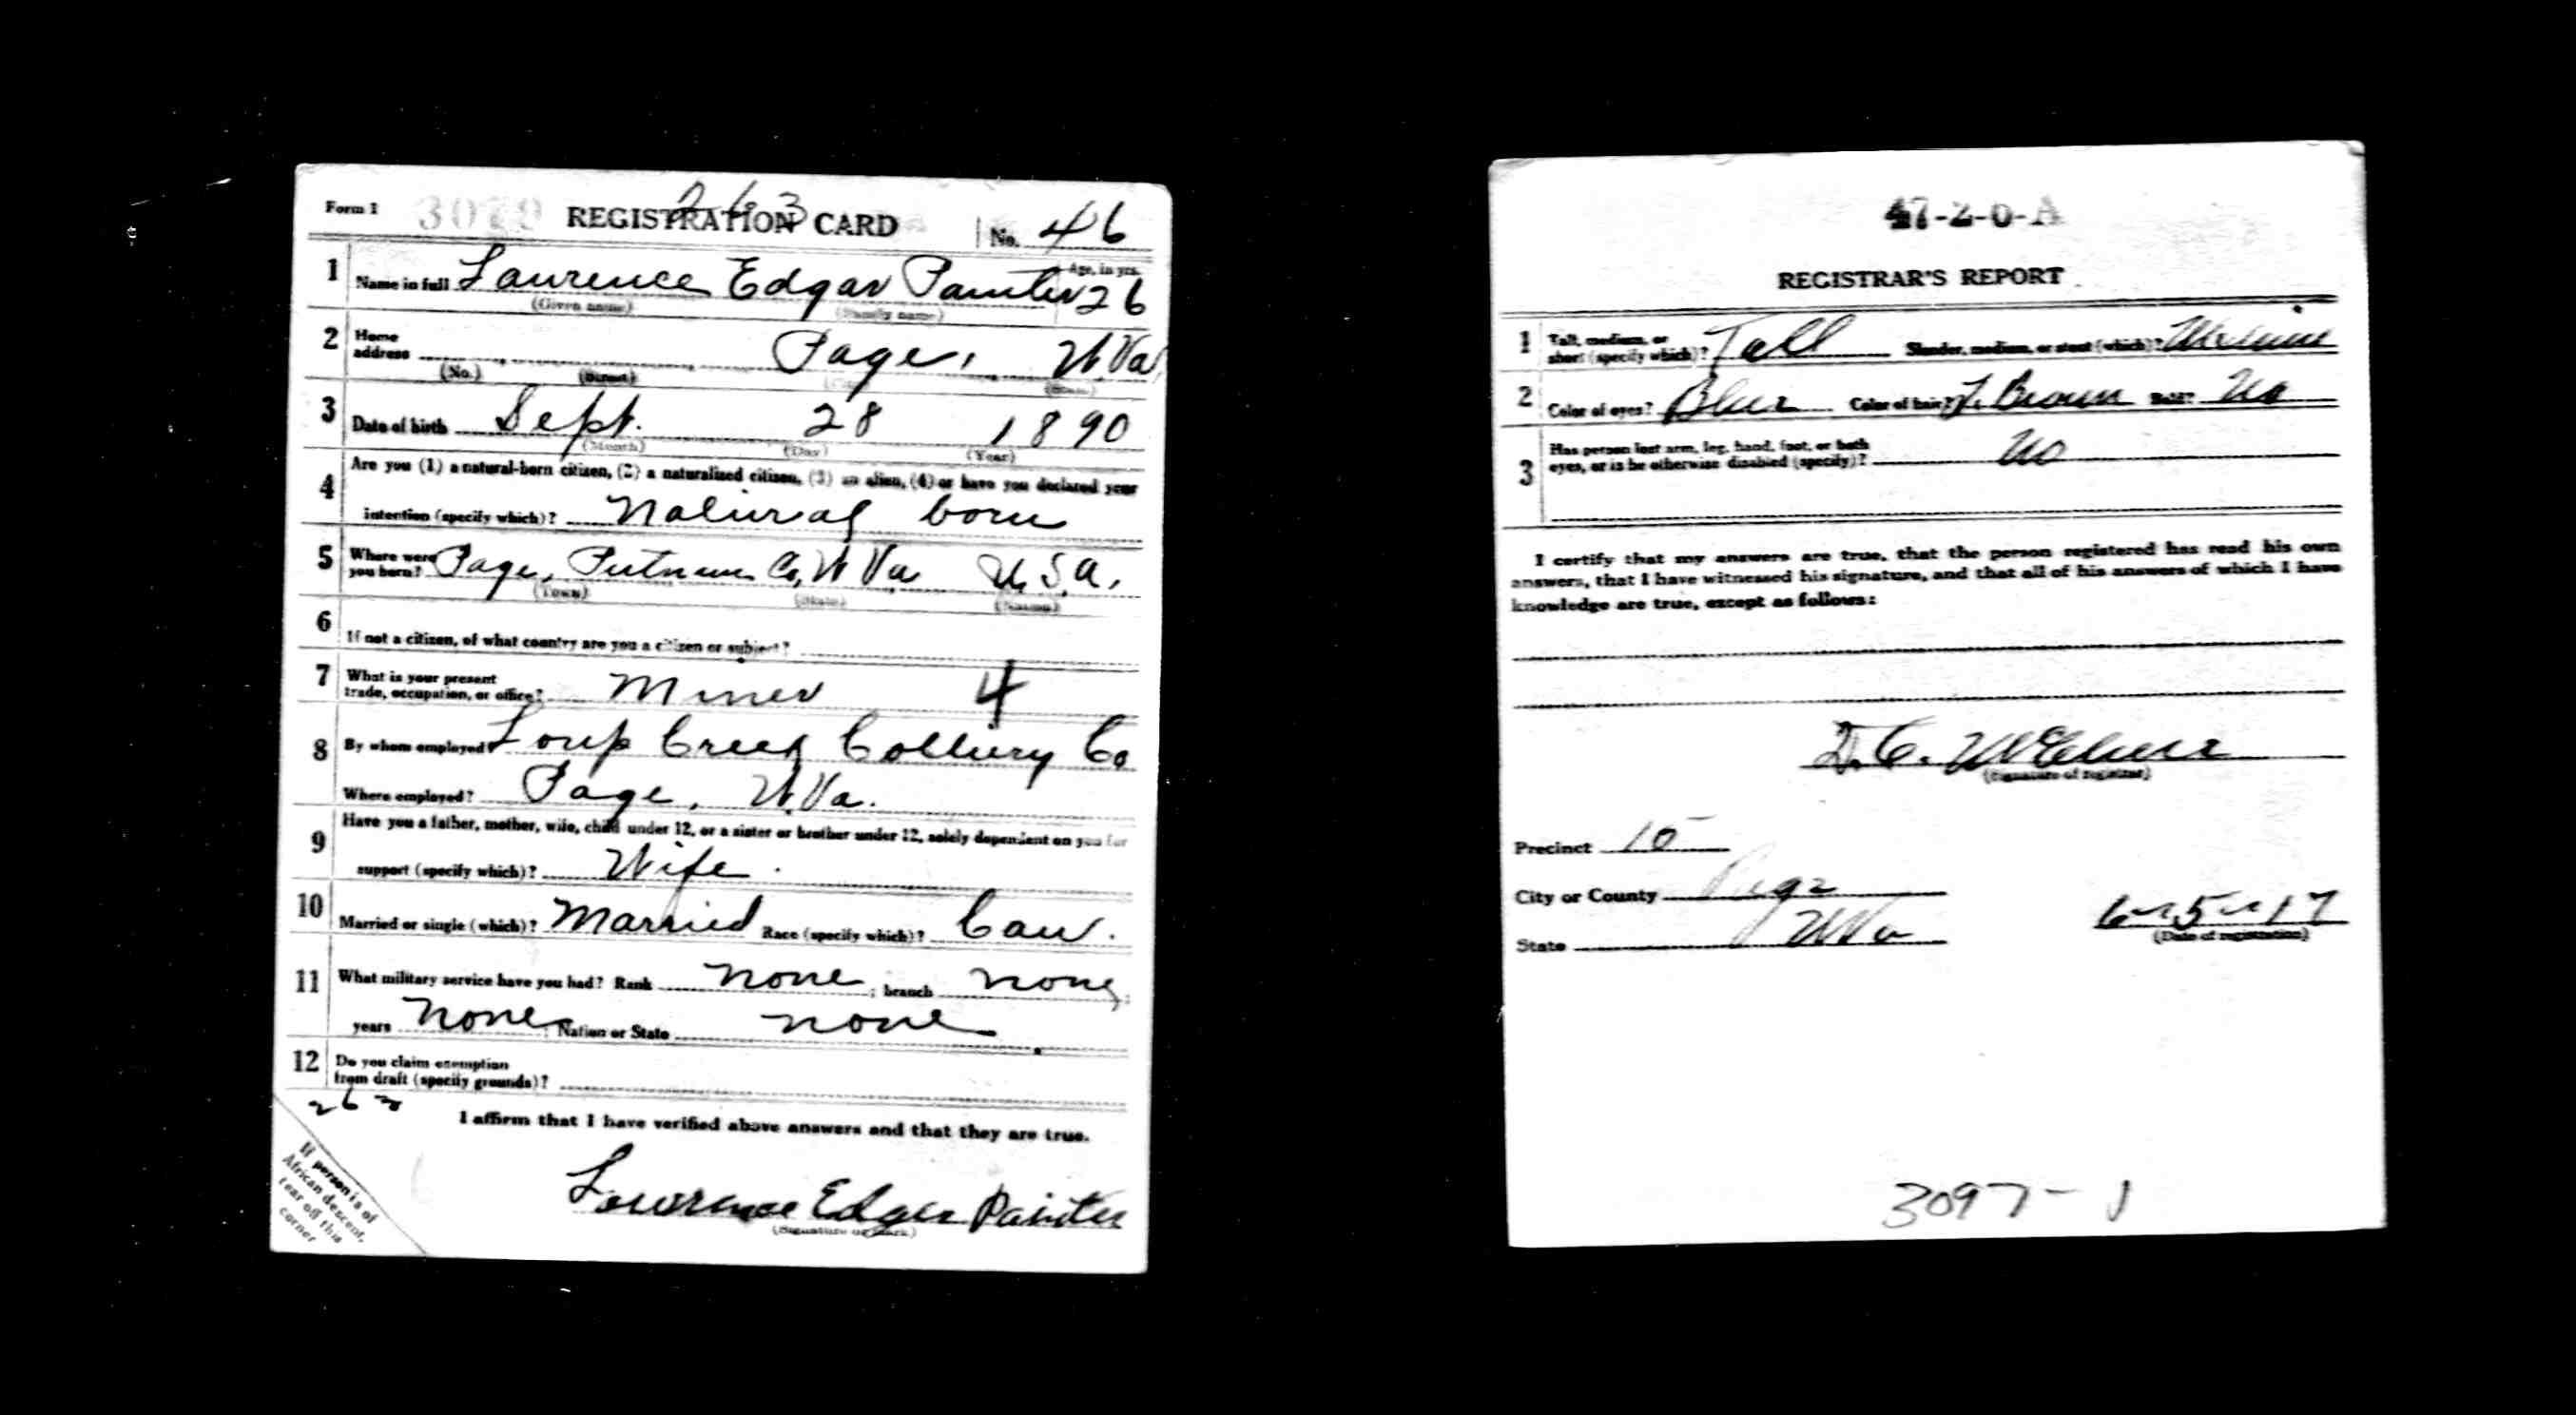 Form 1 REGISTRATION CARD No. 46
263
1 Name in full Lawrence Edgar Painter 26
Age, in yrs.
(Given name) (Family name)
2 Home address Page, W.Va
(No.) (Street) (City) (State)
3 Date of birth Sept. 28 1890
(Month) (Day) (Year)
4 Are you (1) a natural-born citizen, (2) a naturalized citizen, (3) an alien, (4) or have you declared your
intention (specify which)? Natural born
5 Where were you born? Page, Putnam Co, W Va U.S.A.
(Town) (State) (Nation)
6 If not a citizen, of what country are you a citizen or subject?
7 What is your present trade, occupation, or office? Miner 4
8 By whom employed? Loup Creek Colliery Co
Where employed? Page, W.Va.
9 Have you a father, mother, wife, child under 12, or a sister or brother under 12, solely dependent on you for
support (specify which)? Wife.
10 Married or single (which)? Married Race (specify which)? Cau.
11 What military service have you had? Rank none; branch none;
years none; Nation or State none
12 Do you claim exemption
from draft (specify grounds)?
263
I affirm that I have verified above answers and that they are true.
Lawrence Edgar Painter
(Signature or mark)
If person is of
African descent,
tear off this
corner
47-2-0-A
REGISTRAR'S REPORT
1 Tall, medium, or short (specify which)? Tall Slender, medium, or stout (which)? Medium
2 Color of eyes? Blue Color of hair? L. Brown Bald? No
3 Has person lost arm, leg, hand, foot, or both
eyes, or is he otherwise disabled (specify)? No
I certify that my answers are true, that the person registered has read his own
answers, that I have witnessed his signature, and that all of his answers of which I have
knowledge are true, except as follows:
(Signature of registrar)
Precinct 15
City or County Page
State W Va
6-5-17
(Date of registration)
3097-1